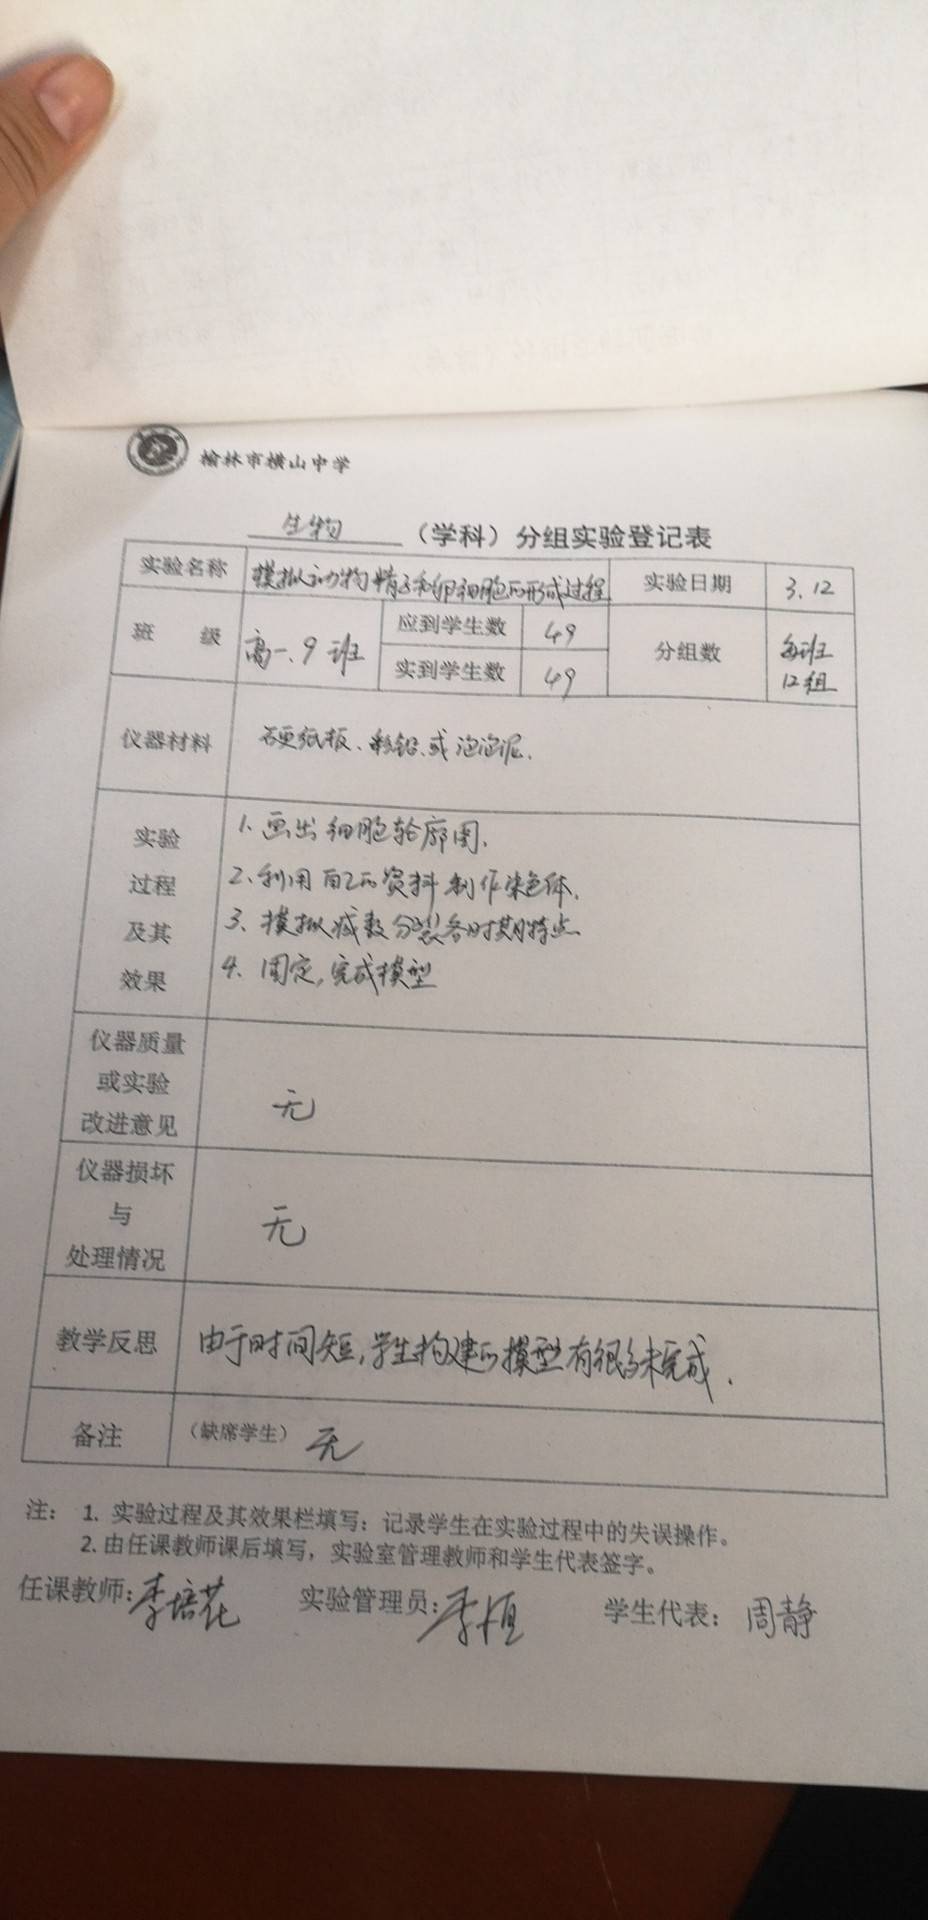 榆林市横山中学
生物 （学科）分组实验登记表
实验名称 模拟动物精子和卵细胞的形成过程 实验日期 3.12
班 级 高一.9班 应到学生数 49 分组数 每班
实到学生数 49 12组
仪器材料 硬纸板、彩铅、或泡泡泥.
实验
过程
及其
效果
1、画出细胞轮廓图.
2、利用自己的资料制作染色体.
3、模拟减数分裂各时期特点
4、固定,完成模型
仪器质量
或实验
改进意见
无
仪器损坏
与
处理情况
无
教学反思 由于时间短,学生构建的模型有很多未完成.
备注 （缺席学生） 无
注： 1. 实验过程及其效果栏填写：记录学生在实验过程中的失误操作。
2. 由任课教师课后填写，实验室管理教师和学生代表签字。
任课教师: 李培花 实验管理员: 李恒 学生代表： 周静